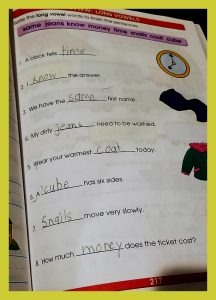 LONG VOWELS
the long vowel words to finish the sentences.
same jeans know money time snails coat cube
1. A clock tells time
2. I know the answer.
3. We have the same first name.
4. My dirty jeans need to be washed.
5. Wear your warmest coat today.
6. A cube has six sides.
7. Snails move very slowly.
8. How much money does the ticket cost?
217